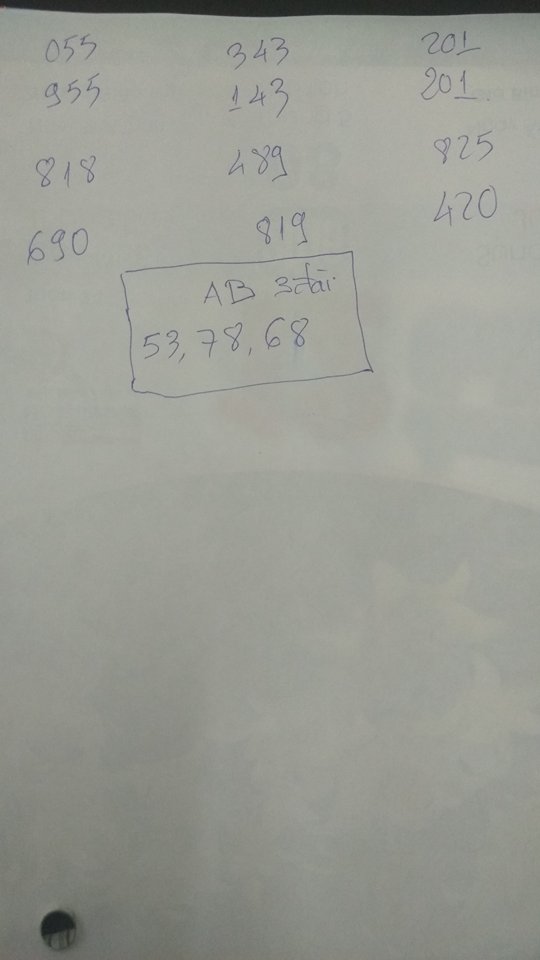 055 343 201
955 143 201
818 489 825
690 819 420
AB 3đài
53, 78, 68